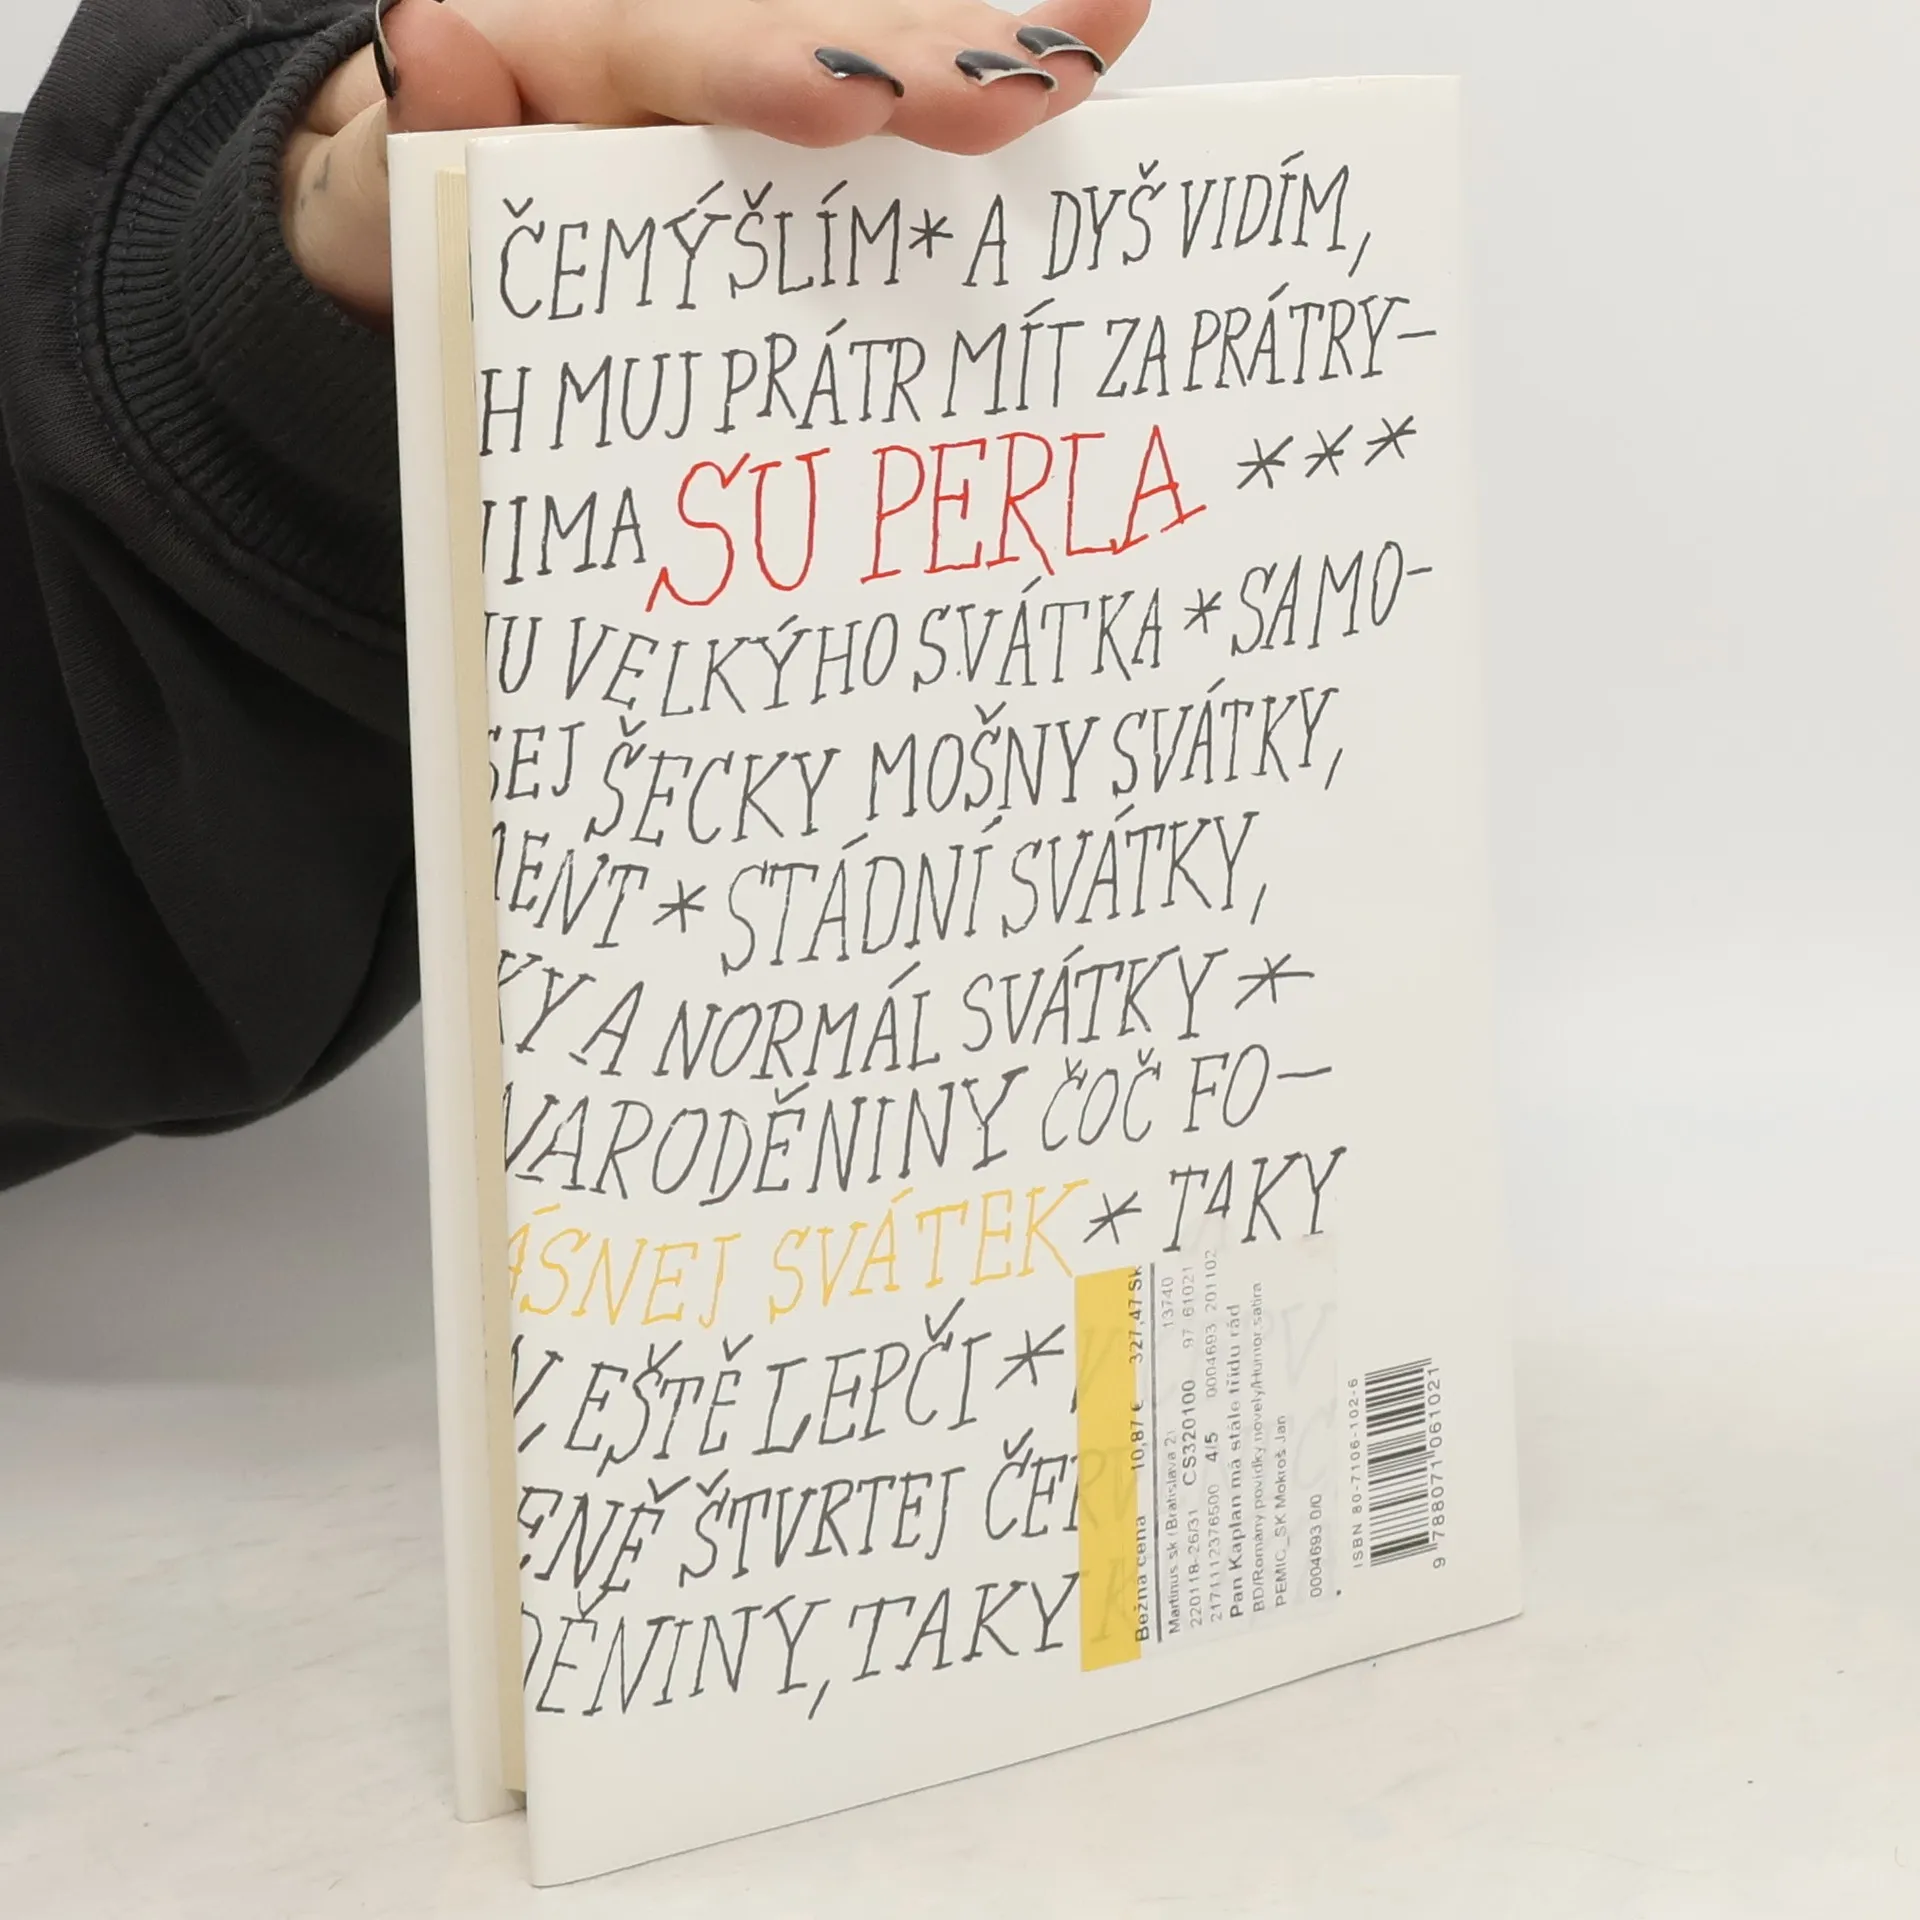 ČEMÝŠLÍM* A DYŠ VIDÍM,
H MUJ PRÁTR MÍT ZA PRÁTRY–
IMA SU PERLA ***
U VELKÝHO SVÁTKA * SAMO–
SEJ ŠECKY MOŠNY SVÁTKY,
MENT * STÁDNÍ SVÁTKY,
KY A NORMÁL SVÁTKY *
NARODĚNINY ČOČ FO–
ÁSNEJ SVÁTEK * TAKY
V EŠTĚ LEPČI *
ENĚ ŠTVRTEJ ČERV
DĚNINY, TAKY A
Bežná cena 10,87 € 327,47 Sk
Martinus.sk (Bratislava 2) 13740
220118-26/31 CS320100 97 61021
2171112376500 4/5 0004693 201102
Pan Kaplan má stále třídu rád
BD/Romány,povídky,novely/Humor,satira
PEMIC_SK Mokroš Jan
0004693 0/0
ISBN 80-7106-102-6
9 788071 061021